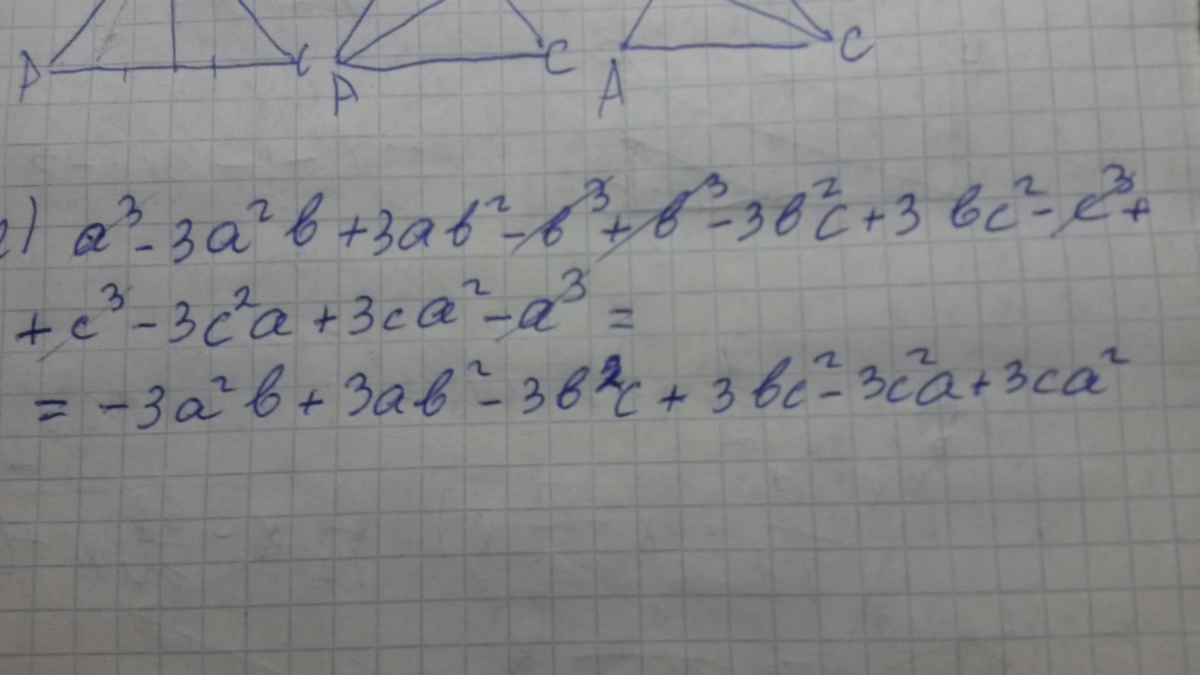 A C A C A C
г) a³ - 3a²b + 3ab² - b³ + b³ - 3b²c + 3bc² - c³ +
+ c³ - 3c²a + 3ca² - a³ =
= - 3a²b + 3ab² - 3b²c + 3bc² - 3c²a + 3ca²